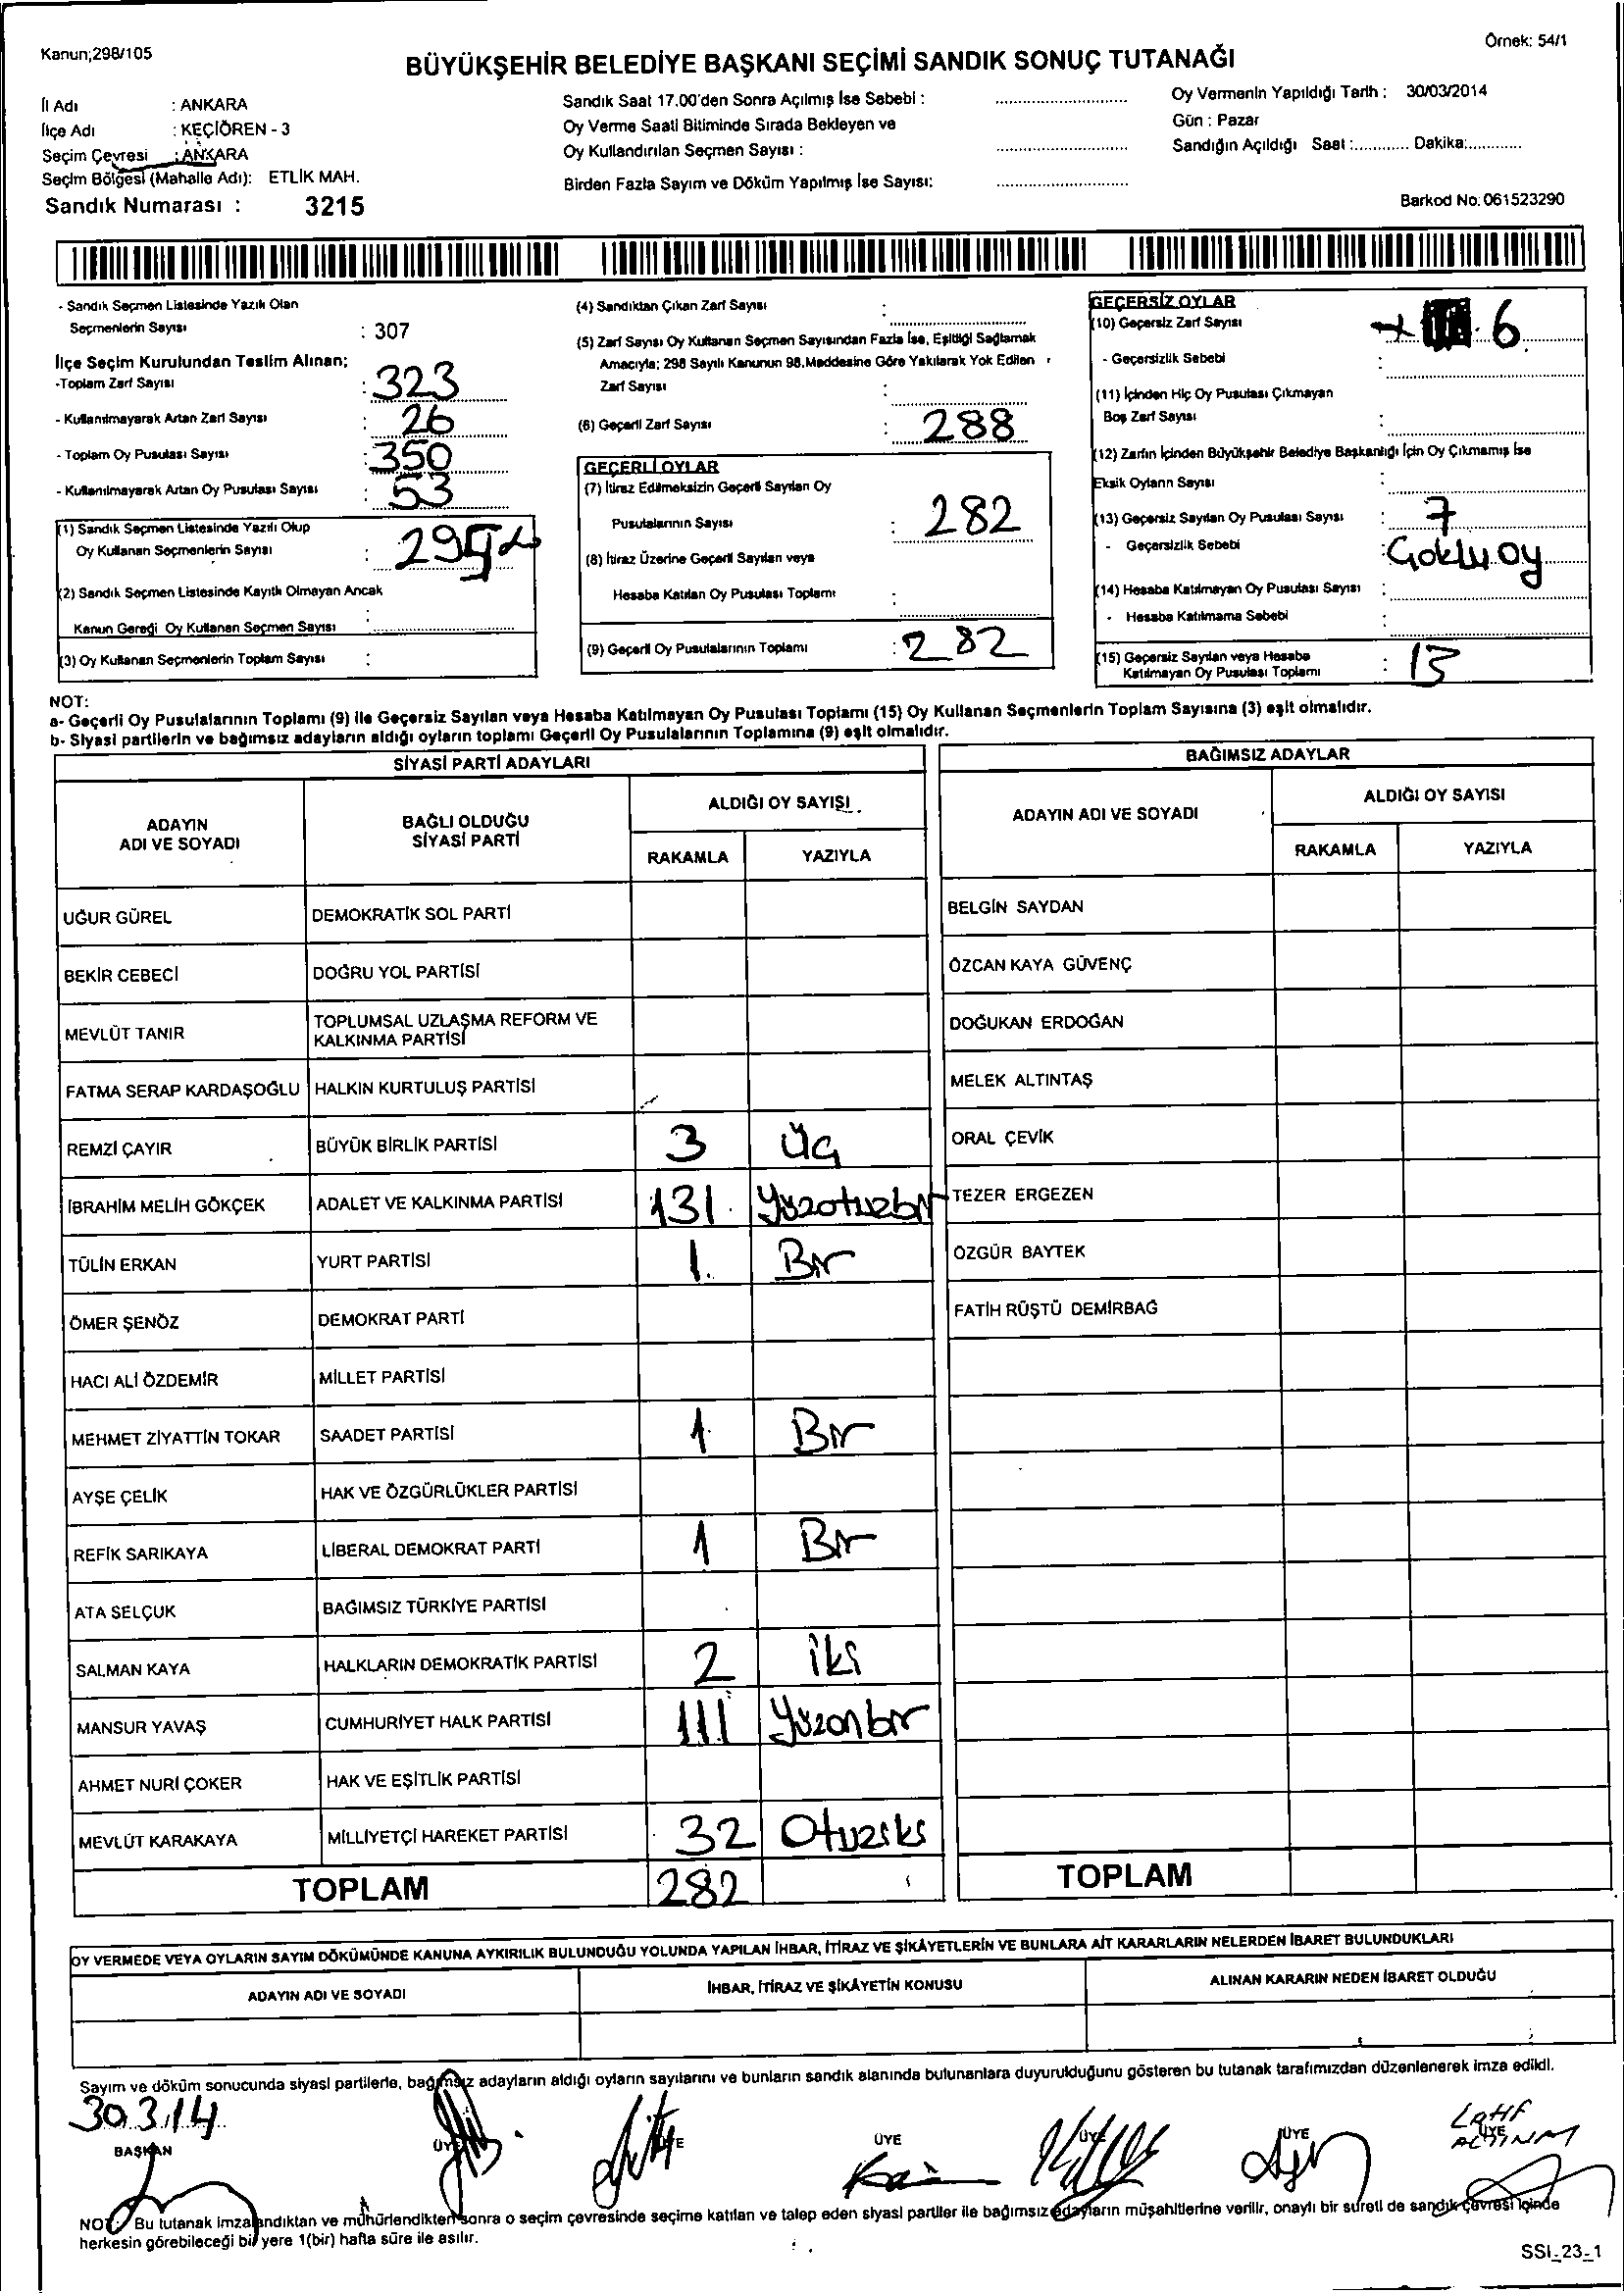 Kanun;298/105
Örnek: 54/1
BÜYÜKŞEHİR BELEDİYE BAŞKANI SEÇİMİ SANDIK SONUÇ TUTANAĞI
İl Adı : ANKARA
İlçe Adı : KEÇİÖREN - 3
Seçim Çevresi : ANKARA
Seçim Bölgesi (Mahalle Adı): ETLİK MAH.
Sandık Numarası : 3215
Sandık Saat 17.00'den Sonra Açılmış İse Sebebi :
Oy Verme Saati Bitiminde Sırada Bekleyen ve
Oy Kullandırılan Seçmen Sayısı :
Birden Fazla Sayım ve Döküm Yapılmış İse Sayısı:
Oy Vermenin Yapıldığı Tarih : 30/03/2014
Gün : Pazar
Sandığın Açıldığı Saat :............ Dakika:............
Barkod No: 061523290
- Sandık Seçmen Listesinde Yazılı Olan
Seçmenlerin Sayısı : 307
İlçe Seçim Kurulundan Teslim Alınan;
-Toplam Zarf Sayısı : 323
- Kullanılmayarak Artan Zarf Sayısı : 26
- Toplam Oy Pusulası Sayısı : 350
- Kullanılmayarak Artan Oy Pusulası Sayısı : 53
(1) Sandık Seçmen Listesinde Yazılı Olup
Oy Kullanan Seçmenlerin Sayısı :
(2) Sandık Seçmen Listesinde Kayıtlı Olmayan Ancak
Kanun Gereği Oy Kullanan Seçmen Sayısı :
(3) Oy Kullanan Seçmenlerin Toplam Sayısı :
(4) Sandıktan Çıkan Zarf Sayısı :
(5) Zarf Sayısı Oy Kullanan Seçmen Sayısından Fazla İse, Eşitliği Sağlamak
Amacıyla; 298 Sayılı Kanunun 98.Maddesine Göre Yakılarak Yok Edilen
Zarf Sayısı :
(6) Geçerli Zarf Sayısı : 288
GEÇERLİ OYLAR
(7) İtiraz Edilmeksizin Geçerli Sayılan Oy
Pusulalarının Sayısı : 282
(8) İtiraz Üzerine Geçerli Sayılan veya
Hesaba Katılan Oy Pusulası Toplamı :
(9) Geçerli Oy Pusulalarının Toplamı : 282
GEÇERSİZ OYLAR
(10) Geçersiz Zarf Sayısı 6
- Geçersizlik Sebebi :
(11) İçinden Hiç Oy Pusulası Çıkmayan
Boş Zarf Sayısı :
(12) Zarfın İçinden Büyükşehir Belediye Başkanlığı İçin Oy Çıkmamış İse
Eksik Oyların Sayısı :
(13) Geçersiz Sayılan Oy Pusulası Sayısı : 7
- Geçersizlik Sebebi : Goklu oy
(14) Hesaba Katılmayan Oy Pusulası Sayısı :
- Hesaba Katılmama Sebebi :
(15) Geçersiz Sayılan veya Hesaba
Katılmayan Oy Pusulası Toplamı : 13
NOT:
a- Geçerli Oy Pusulalarının Toplamı (9) ile Geçersiz Sayılan veya Hesaba Katılmayan Oy Pusulası Toplamı (15) Oy Kullanan Seçmenlerin Toplam Sayısına (3) eşit olmalıdır.
b- Siyasi partilerin ve bağımsız adayların aldığı oyların toplamı Geçerli Oy Pusulalarının Toplamına (9) eşit olmalıdır.
SİYASİ PARTİ ADAYLARI
ADAYIN
ADI VE SOYADI
BAĞLI OLDUĞU
SİYASİ PARTİ
ALDIĞI OY SAYISI
RAKAMLA YAZIYLA
UĞUR GÜREL DEMOKRATİK SOL PARTİ
BEKİR CEBECİ DOĞRU YOL PARTİSİ
MEVLÜT TANIR TOPLUMSAL UZLAŞMA REFORM VE
KALKINMA PARTİSİ
FATMA SERAP KARDAŞOĞLU HALKIN KURTULUŞ PARTİSİ
REMZİ ÇAYIR BÜYÜK BİRLİK PARTİSİ 3 üç
İBRAHİM MELİH GÖKÇEK ADALET VE KALKINMA PARTİSİ 131 Yüzotuzbir
TÜLİN ERKAN YURT PARTİSİ 1. Bir
ÖMER ŞENÖZ DEMOKRAT PARTİ
HACI ALİ ÖZDEMİR MİLLET PARTİSİ
MEHMET ZİYATTİN TOKAR SAADET PARTİSİ 1 Bir
AYŞE ÇELİK HAK VE ÖZGÜRLÜKLER PARTİSİ
REFİK SARIKAYA LİBERAL DEMOKRAT PARTİ 1 Bir
ATA SELÇUK BAĞIMSIZ TÜRKİYE PARTİSİ
SALMAN KAYA HALKLARIN DEMOKRATİK PARTİSİ 2 iki
MANSUR YAVAŞ CUMHURİYET HALK PARTİSİ 111 Yüzonbir
AHMET NURİ ÇOKER HAK VE EŞİTLİK PARTİSİ
MEVLÜT KARAKAYA MİLLİYETÇİ HAREKET PARTİSİ 32 Otuziki
TOPLAM 282
BAĞIMSIZ ADAYLAR
ADAYIN ADI VE SOYADI
ALDIĞI OY SAYISI
RAKAMLA YAZIYLA
BELGİN SAYDAN
ÖZCAN KAYA GÜVENÇ
DOĞUKAN ERDOĞAN
MELEK ALTINTAŞ
ORAL ÇEVİK
TEZER ERGEZEN
ÖZGÜR BAYTEK
FATİH RÜŞTÜ DEMİRBAĞ
TOPLAM
OY VERMEDE VEYA OYLARIN SAYIM DÖKÜMÜNDE KANUNA AYKIRILIK BULUNDUĞU YOLUNDA YAPILAN İHBAR, İTİRAZ VE ŞİKÂYETLERİN VE BUNLARA AİT KARARLARIN NELERDEN İBARET BULUNDUKLARI
ADAYIN ADI VE SOYADI İHBAR, İTİRAZ VE ŞİKÂYETİN KONUSU ALINAN KARARIN NEDEN İBARET OLDUĞU
Sayım ve döküm sonucunda siyasi partilerle, bağımsız adayların aldığı oyların sayılarını ve bunların sandık alanında bulunanlara duyurulduğunu gösteren bu tutanak tarafımızdan düzenlenerek imza edildi.
30.3.14
BAŞKAN ÜYE ÜYE ÜYE ÜYE ÜYE ÜYE
NOT: Bu tutanak imzalandıktan ve mühürlendikten sonra o seçim çevresinde seçime katılan ve talep eden siyasi partiler ile bağımsız adayların müşahitlerine verilir, onaylı bir sureti de sandık çevresi içinde
herkesin görebileceği bir yere 1(bir) hafta süre ile asılır.
SSI_23_1